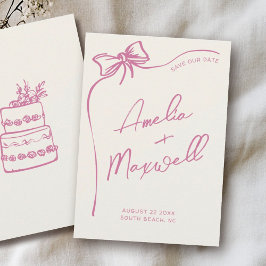 SAVE OUR DATE
Amelia
+
Maxwell
AUGUST 27 20XX
SOUTH BEACH, NC